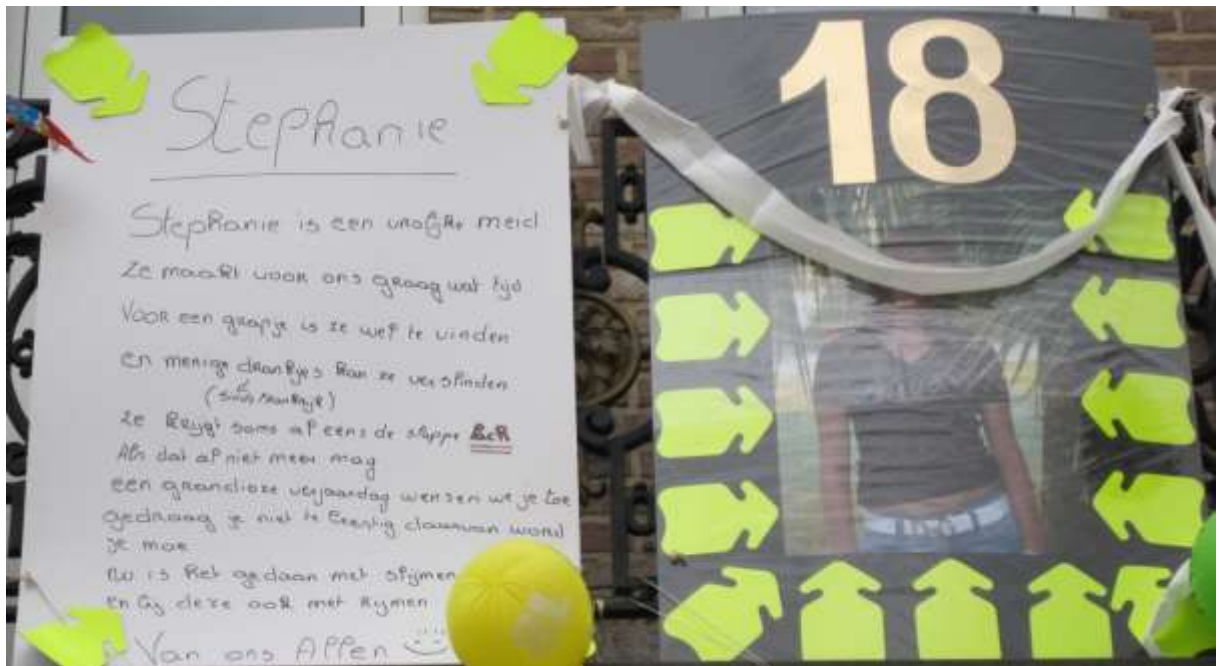 Stephanie
Stephanie is een vrolijke meid
Ze maakt voor ons graag wat tijd
Voor een grapje is ze wel te vinden
en menige drankjes kan ze verslinden
(sinds Frankrijk)
ze krijgt soms al eens de slappe lach
Als dat al niet meer mag
een grandioze verjaardag wensen we je toe
gedraag je niet te daarvan word
je moe
Nu is het gedaan met slijmen
en bij deze ook met rijmen
Van ons Allen
18